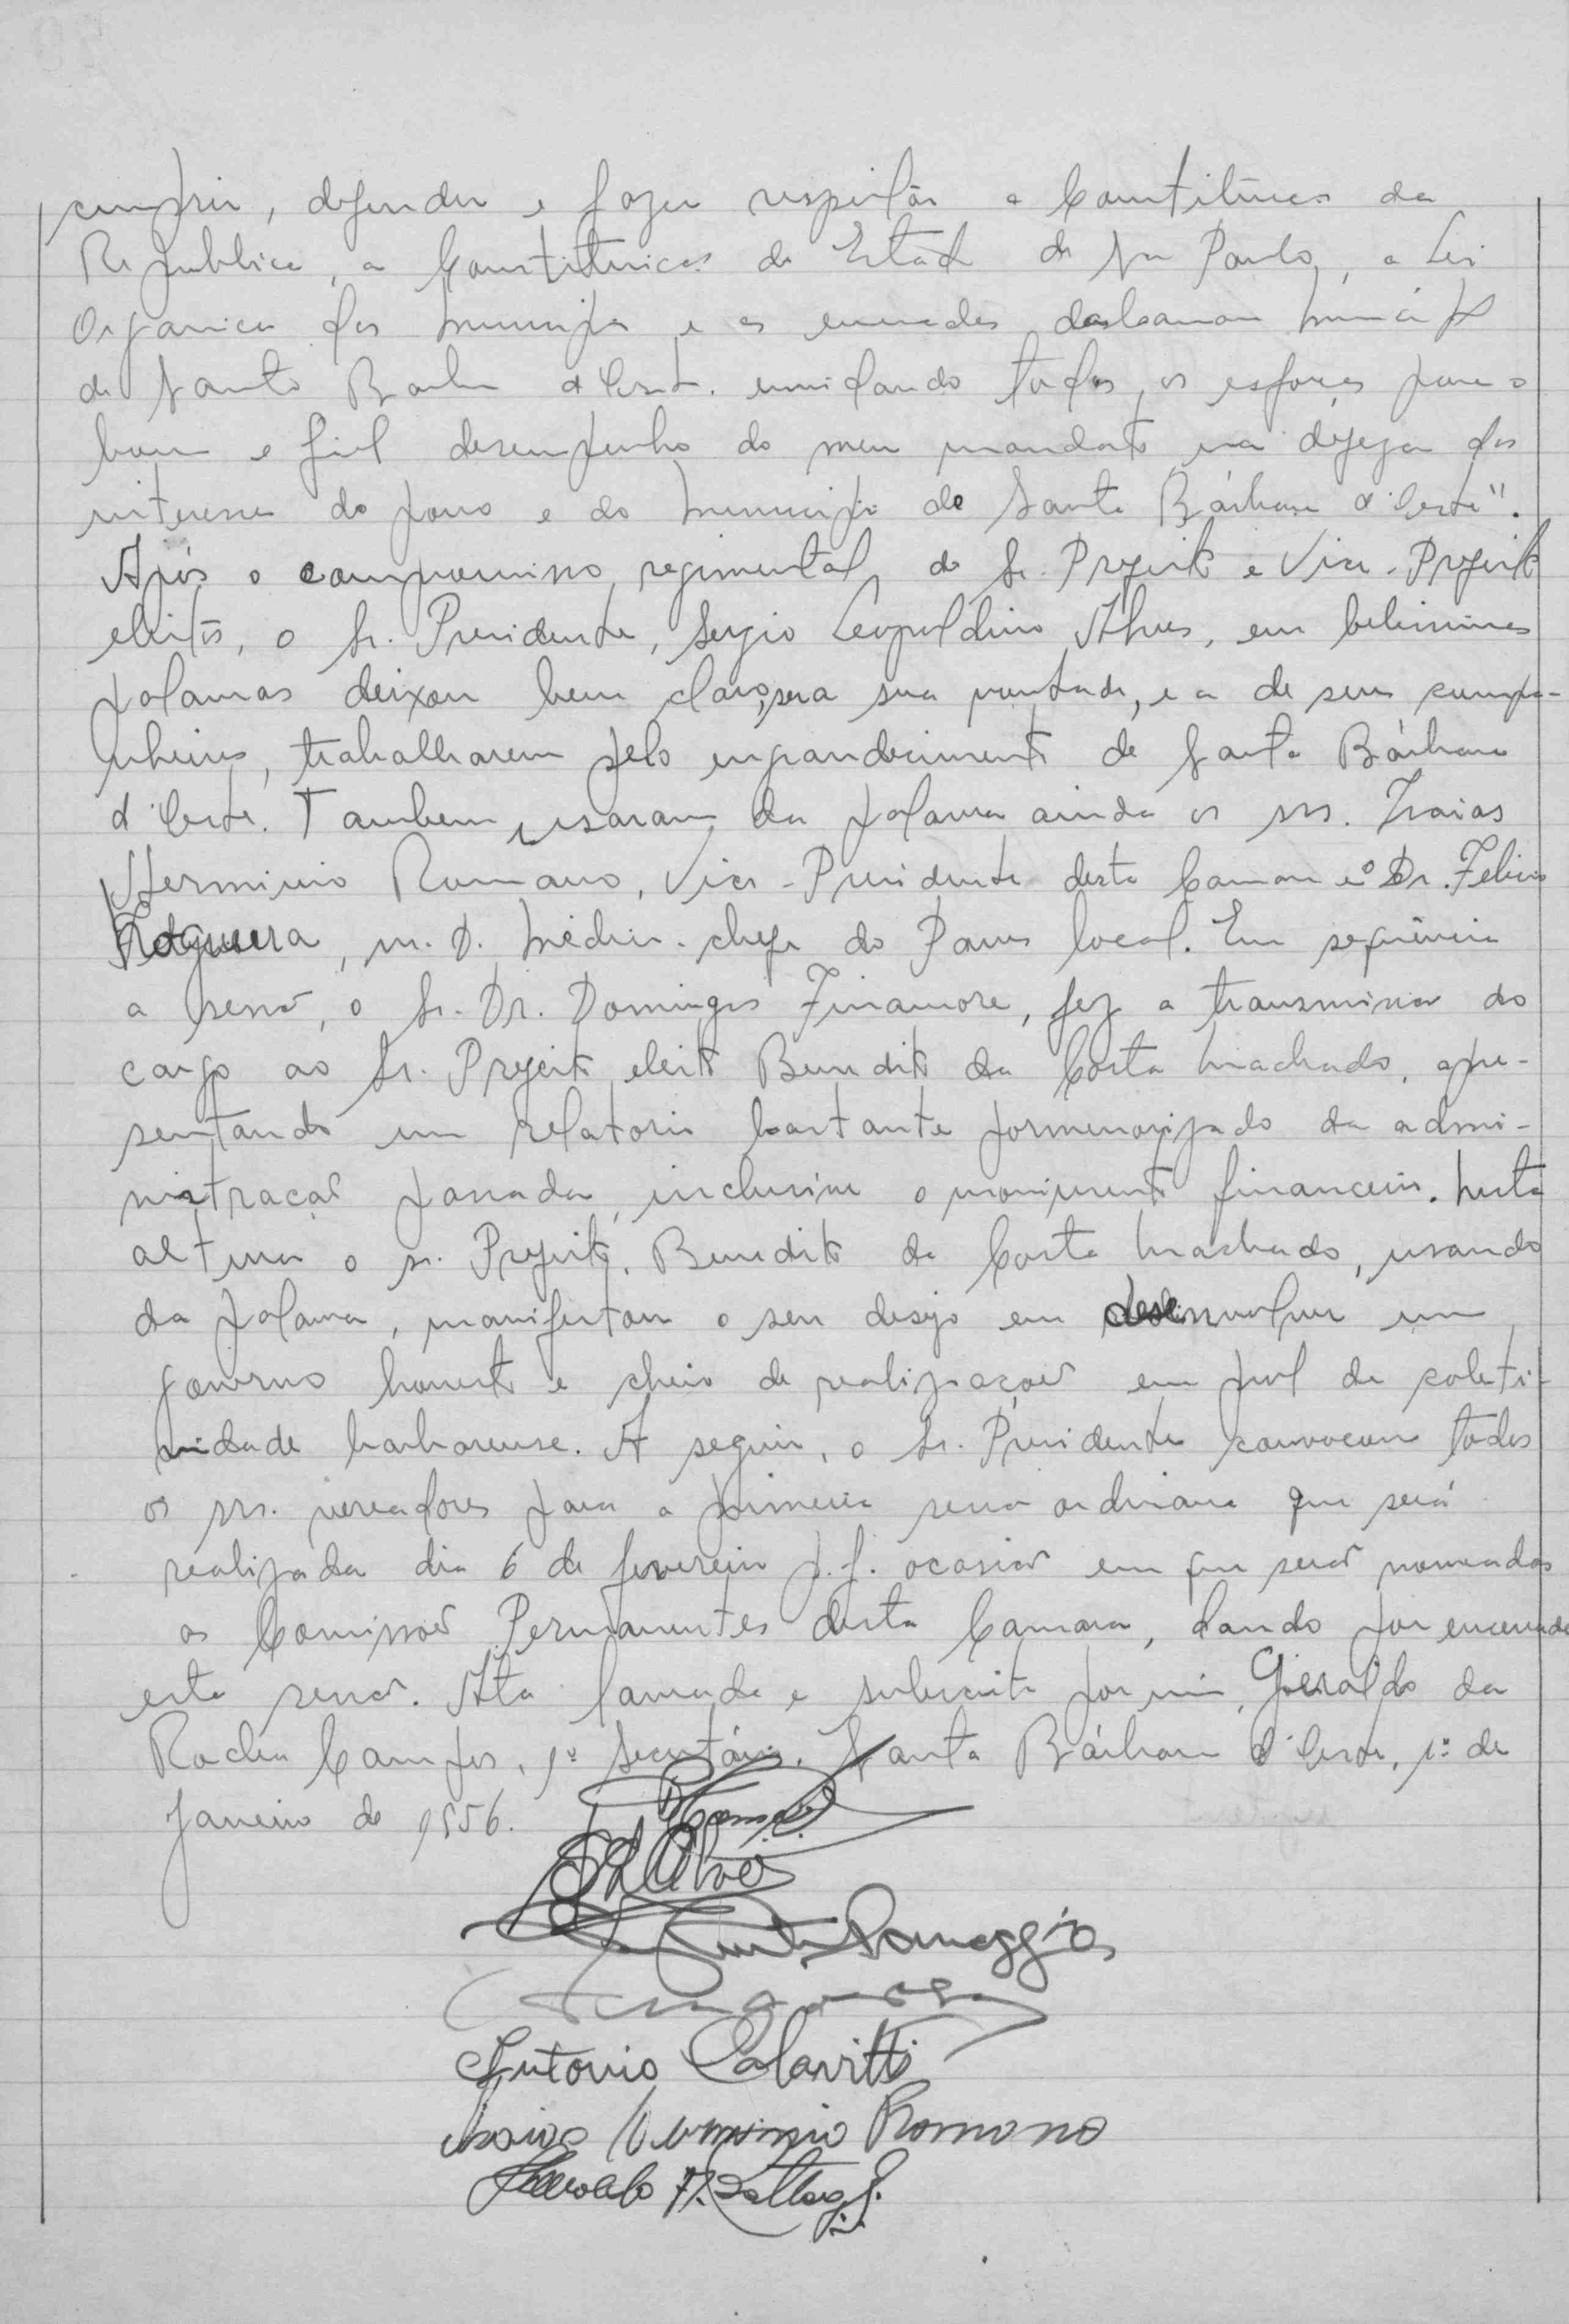 cumprir, defender e fazer respeitar a Constituicao da
Republica, a Constituicao do Estado de Sao Paulo, a Lei
Organica dos Municipios e as emendas da Camara Municipal
de Santa Barbara d'Oeste. envidando todos os esforços para o
bom e fiel desempenho do meu mandato na defeza dos
interesses do povo e do Municipio de Santa Bárbara d'Oeste".
Após o compromisso regimental, do Sr. Prefeito e Vice-Prefeito
eleitos, o Sr. Presidente, Sergio Leopoldino Alves, em belissimas
palavras deixou bem claro, sua vontade, e a de seus compa-
nheiros, trabalharem pelo engrandecimento de Santa Bárbara
d'Oeste. Tambem usaram da palavra ainda os srs. Izaias
Herminio Romano, Vice-Presidente desta Camara e o Dr. Felicio
, m. D. Médico-chefe do Pamos local. Em sequência
a sessão, o Sr. Dr. Domingos Finamore, fez a transmissão do
cargo ao Sr. Prefeito eleito Benedito da Costa Machado, apre-
sentando um relatorio bastante pormenorizado da admi-
nistraçao passada, inclusive o movimento financeiro. Nesta
altura o sr. Prefeito, Benedito da Costa Machado, usando
da palavra, manifestou o seu desejo em desenvolver um
governo honesto e cheio de realizaçoes em prol da coleti-
vidade barbarense. A seguir, o Sr. Presidente convocou todos
os srs. vereadores para a primeira sessao ordinaria que será
realizada dia 6 de fevereiro p.f. ocasiao em que serao nomeadas
as Comissoes Permanentes desta Camara, dando por encerrada
esta sessao. Ata lavrada e subscrita por mim, Geraldo da
Rocha Campos, 1º Secretário. Santa Bárbara d'Oeste, 1º de
Janeiro de 1956.
Alves
Romeggio
Antonio Calavitti
Izaias Herminio Romano